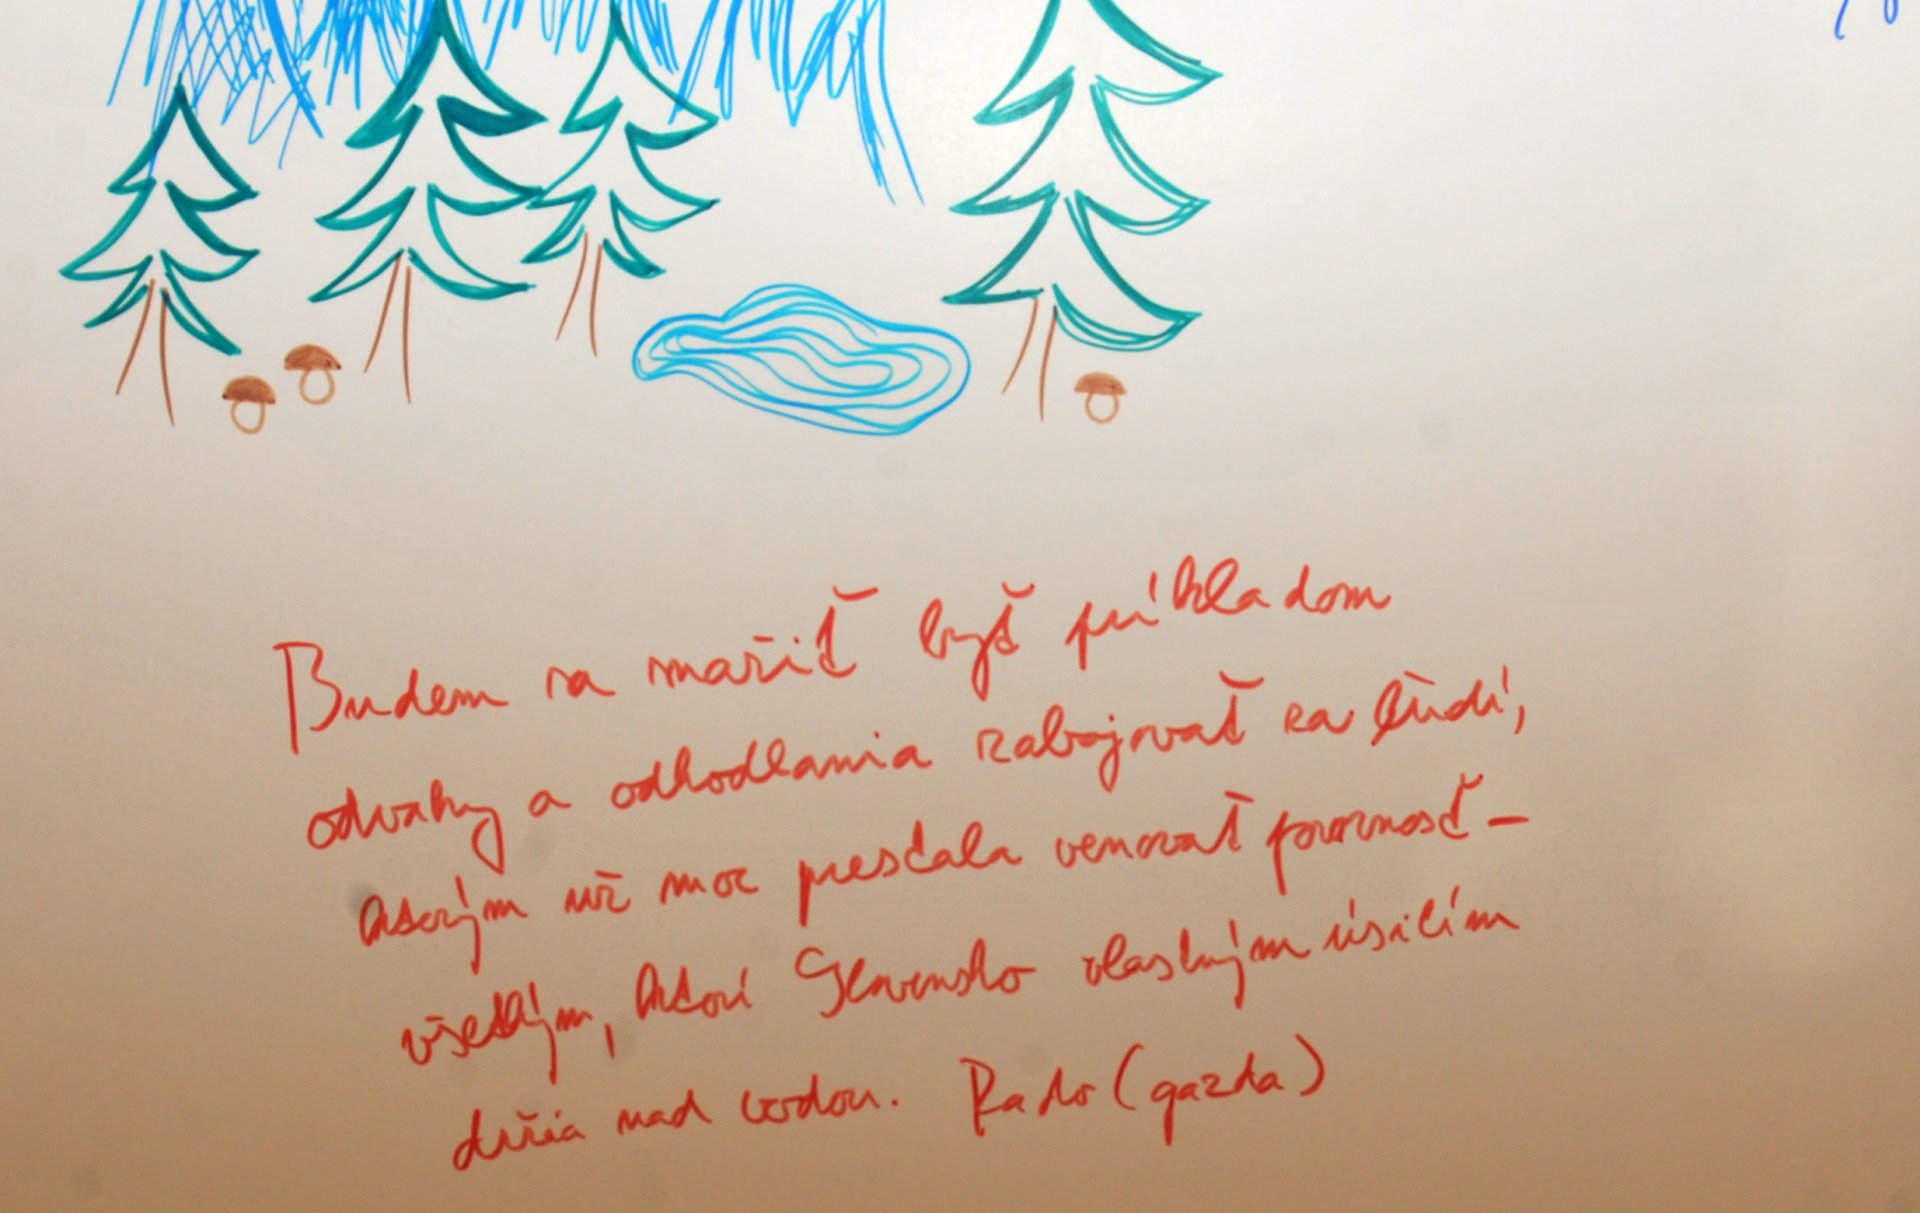 Budem sa snažiť byť príkladom
odvahy a odhodlania zabojovať za ľudí,
ktorým už moc prestala venovať pozornosť –
všetkým, ktorí Slovensko vlastným úsilím
držia nad vodou. Rado (gazda)